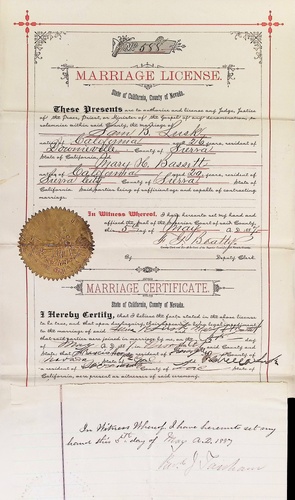 No. 555
MARRIAGE LICENSE.
State of California, County of Nevada.
These Presents are to authorize and license any Judge, Justice
of the Peace, Priest, or Minister of the Gospel of any denomination, to
solemnize within said County, the marriage of
Sam B. Lusk
native of California aged 26 years
Downieville County of Sierra
State of California, and
Mary H. Bassett
native of California aged 20 years
Sierra City County of Sierra State of
California, said parties being of sufficient age and capable of contracting
marriage.
In Witness Whereof, I have hereunto set my hand and
affixed the seal of the Superior Court of said County
this 5th day of May A.D. 1887
F. G. Beatty
By Deputy Clerk
MARRIAGE CERTIFICATE.
State of California, County of Nevada.
I Hereby Certify, that I believe the facts stated in the above license
to be true, and that upon
to the marriage of said
that said parties were joined in marriage by me, on the
May
State; that a resident of
Nevada
a resident of State of
California, were present as witnesses of said ceremony.
In Witness Whereof I have hereunto set my
hand this 5th day of May A.D. 1887